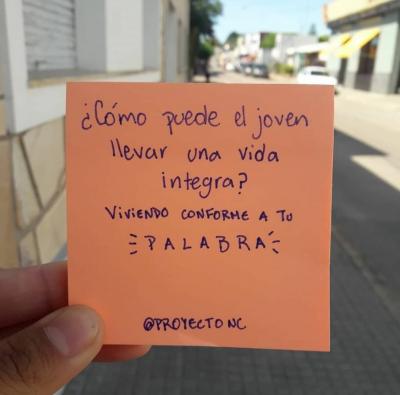 ¿Cómo puede el joven
llevar una vida
integra?
VIVIENDO CONFORME A TU
PALABRA
@PROYECTO NC